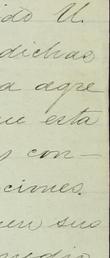 ido U.
dichas
a agre
ue esta
s con-
ciones.
en sus
medio